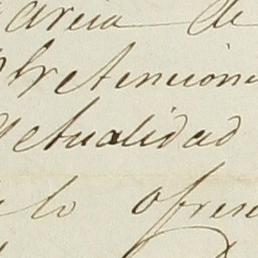 arcia de
Pretencione
Actualidad
lo ofrese